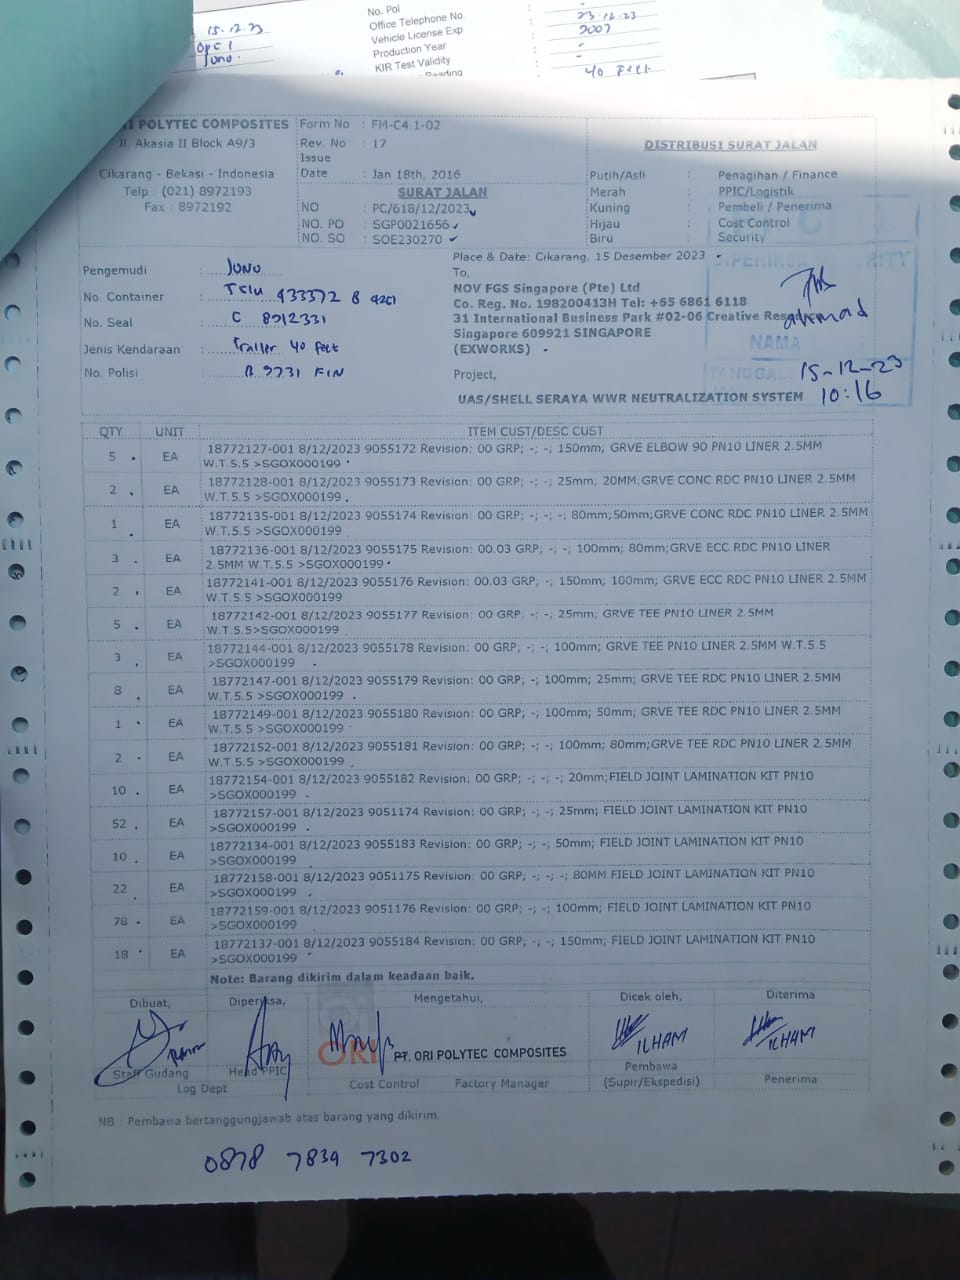 15.12.23
Opc 1
Juno.
No. Pol
Office Telephone No :
Vehicle License Exp : 23.12.23
Production Year : 2007
KIR Test Validity : -
40 Feet
ORI POLYTEC COMPOSITES
Jl. Akasia II Block A9/3
Cikarang - Bekasi - Indonesia
Telp : (021) 8972193
Fax : 8972192
Form No : FM-C4.1-02
Rev. No : 17
Issue
Date : Jan 18th, 2016
SURAT JALAN
NO : PC/618/12/2023
NO. PO : SGP0021656
NO. SO : SOE230270
DISTRIBUSI SURAT JALAN
Putih/Asli : Penagihan / Finance
Merah : PPIC/Logistik
Kuning : Pembeli / Penerima
Hijau : Cost Control
Biru : Security
Pengemudi : Juno
No. Container : 933372 8 42G1
No. Seal : C 8912331
Jenis Kendaraan : Trailer 40 feet
No. Polisi : B 9731 FIN
Place & Date: Cikarang, 15 Desember 2023
To,
NOV FGS Singapore (Pte) Ltd
Co. Reg. No. 198200413H Tel: +65 6861 6118
31 International Business Park #02-06 Creative
Singapore 609921 SINGAPORE
(EXWORKS)
Project,
UAS/SHELL SERAYA WWR NEUTRALIZATION SYSTEM
ahmad
NAMA
15-12-23
10:16
QTY UNIT ITEM CUST/DESC CUST
5 EA 18772127-001 8/12/2023 9055172 Revision: 00 GRP; -; -; 150mm; GRVE ELBOW 90 PN10 LINER 2.5MM
W.T.5.5 >SGOX000199
2 EA 18772128-001 8/12/2023 9055173 Revision: 00 GRP; -; -; 25mm; 20MM;GRVE CONC RDC PN10 LINER 2.5MM
W.T.5.5 >SGOX000199
1 EA 18772135-001 8/12/2023 9055174 Revision: 00 GRP; -; -; -; 80mm;50mm;GRVE CONC RDC PN10 LINER 2.5MM
W.T.5.5 >SGOX000199
3 EA 18772136-001 8/12/2023 9055175 Revision: 00.03 GRP; -; -; 100mm; 80mm;GRVE ECC RDC PN10 LINER
2.5MM W.T.5.5 >SGOX000199
2 EA 18772141-001 8/12/2023 9055176 Revision: 00.03 GRP; -; 150mm; 100mm; GRVE ECC RDC PN10 LINER 2.5MM
W.T.5.5 >SGOX000199
5 EA 18772142-001 8/12/2023 9055177 Revision: 00 GRP; -; -; 25mm; GRVE TEE PN10 LINER 2.5MM
W.T.5.5>SGOX000199
3 EA 18772144-001 8/12/2023 9055178 Revision: 00 GRP; -; -; 100mm; GRVE TEE PN10 LINER 2.5MM W.T.5.5
>SGOX000199
8 EA 18772147-001 8/12/2023 9055179 Revision: 00 GRP; -; 100mm; 25mm; GRVE TEE RDC PN10 LINER 2.5MM
W.T.5.5 >SGOX000199
1 EA 18772149-001 8/12/2023 9055180 Revision: 00 GRP; -; 100mm; 50mm; GRVE TEE RDC PN10 LINER 2.5MM
W.T.5.5 >SGOX000199
2 EA 18772152-001 8/12/2023 9055181 Revision: 00 GRP; -; -; 100mm; 80mm;GRVE TEE RDC PN10 LINER 2.5MM
W.T.5.5 >SGOX000199
10 EA 18772154-001 8/12/2023 9055182 Revision: 00 GRP; -; -; -; 20mm;FIELD JOINT LAMINATION KIT PN10
>SGOX000199
52 EA 18772157-001 8/12/2023 9051174 Revision: 00 GRP; -; -; 25mm; FIELD JOINT LAMINATION KIT PN10
>SGOX000199
10 EA 18772134-001 8/12/2023 9055183 Revision: 00 GRP; -; -; 50mm; FIELD JOINT LAMINATION KIT PN10
>SGOX000199
22 EA 18772158-001 8/12/2023 9051175 Revision: 00 GRP; -; -; -; 80MM FIELD JOINT LAMINATION KIT PN10
>SGOX000199
78 EA 18772159-001 8/12/2023 9051176 Revision: 00 GRP; -; -; 100mm; FIELD JOINT LAMINATION KIT PN10
>SGOX000199
18 EA 18772137-001 8/12/2023 9055184 Revision: 00 GRP; -; -; 150mm; FIELD JOINT LAMINATION KIT PN10
>SGOX000199
Note: Barang dikirim dalam keadaan baik.
Dibuat, Diperiksa, Mengetahui, Dicek oleh, Diterima
ILHAM ILHAM
ORI PT. ORI POLYTEC COMPOSITES
Staff Gudang Head PPIC Cost Control Factory Manager Pembawa Penerima
Log Dept (Supir/Ekspedisi)
NB : Pembawa bertanggungjawab atas barang yang dikirim.
0878 7839 7302